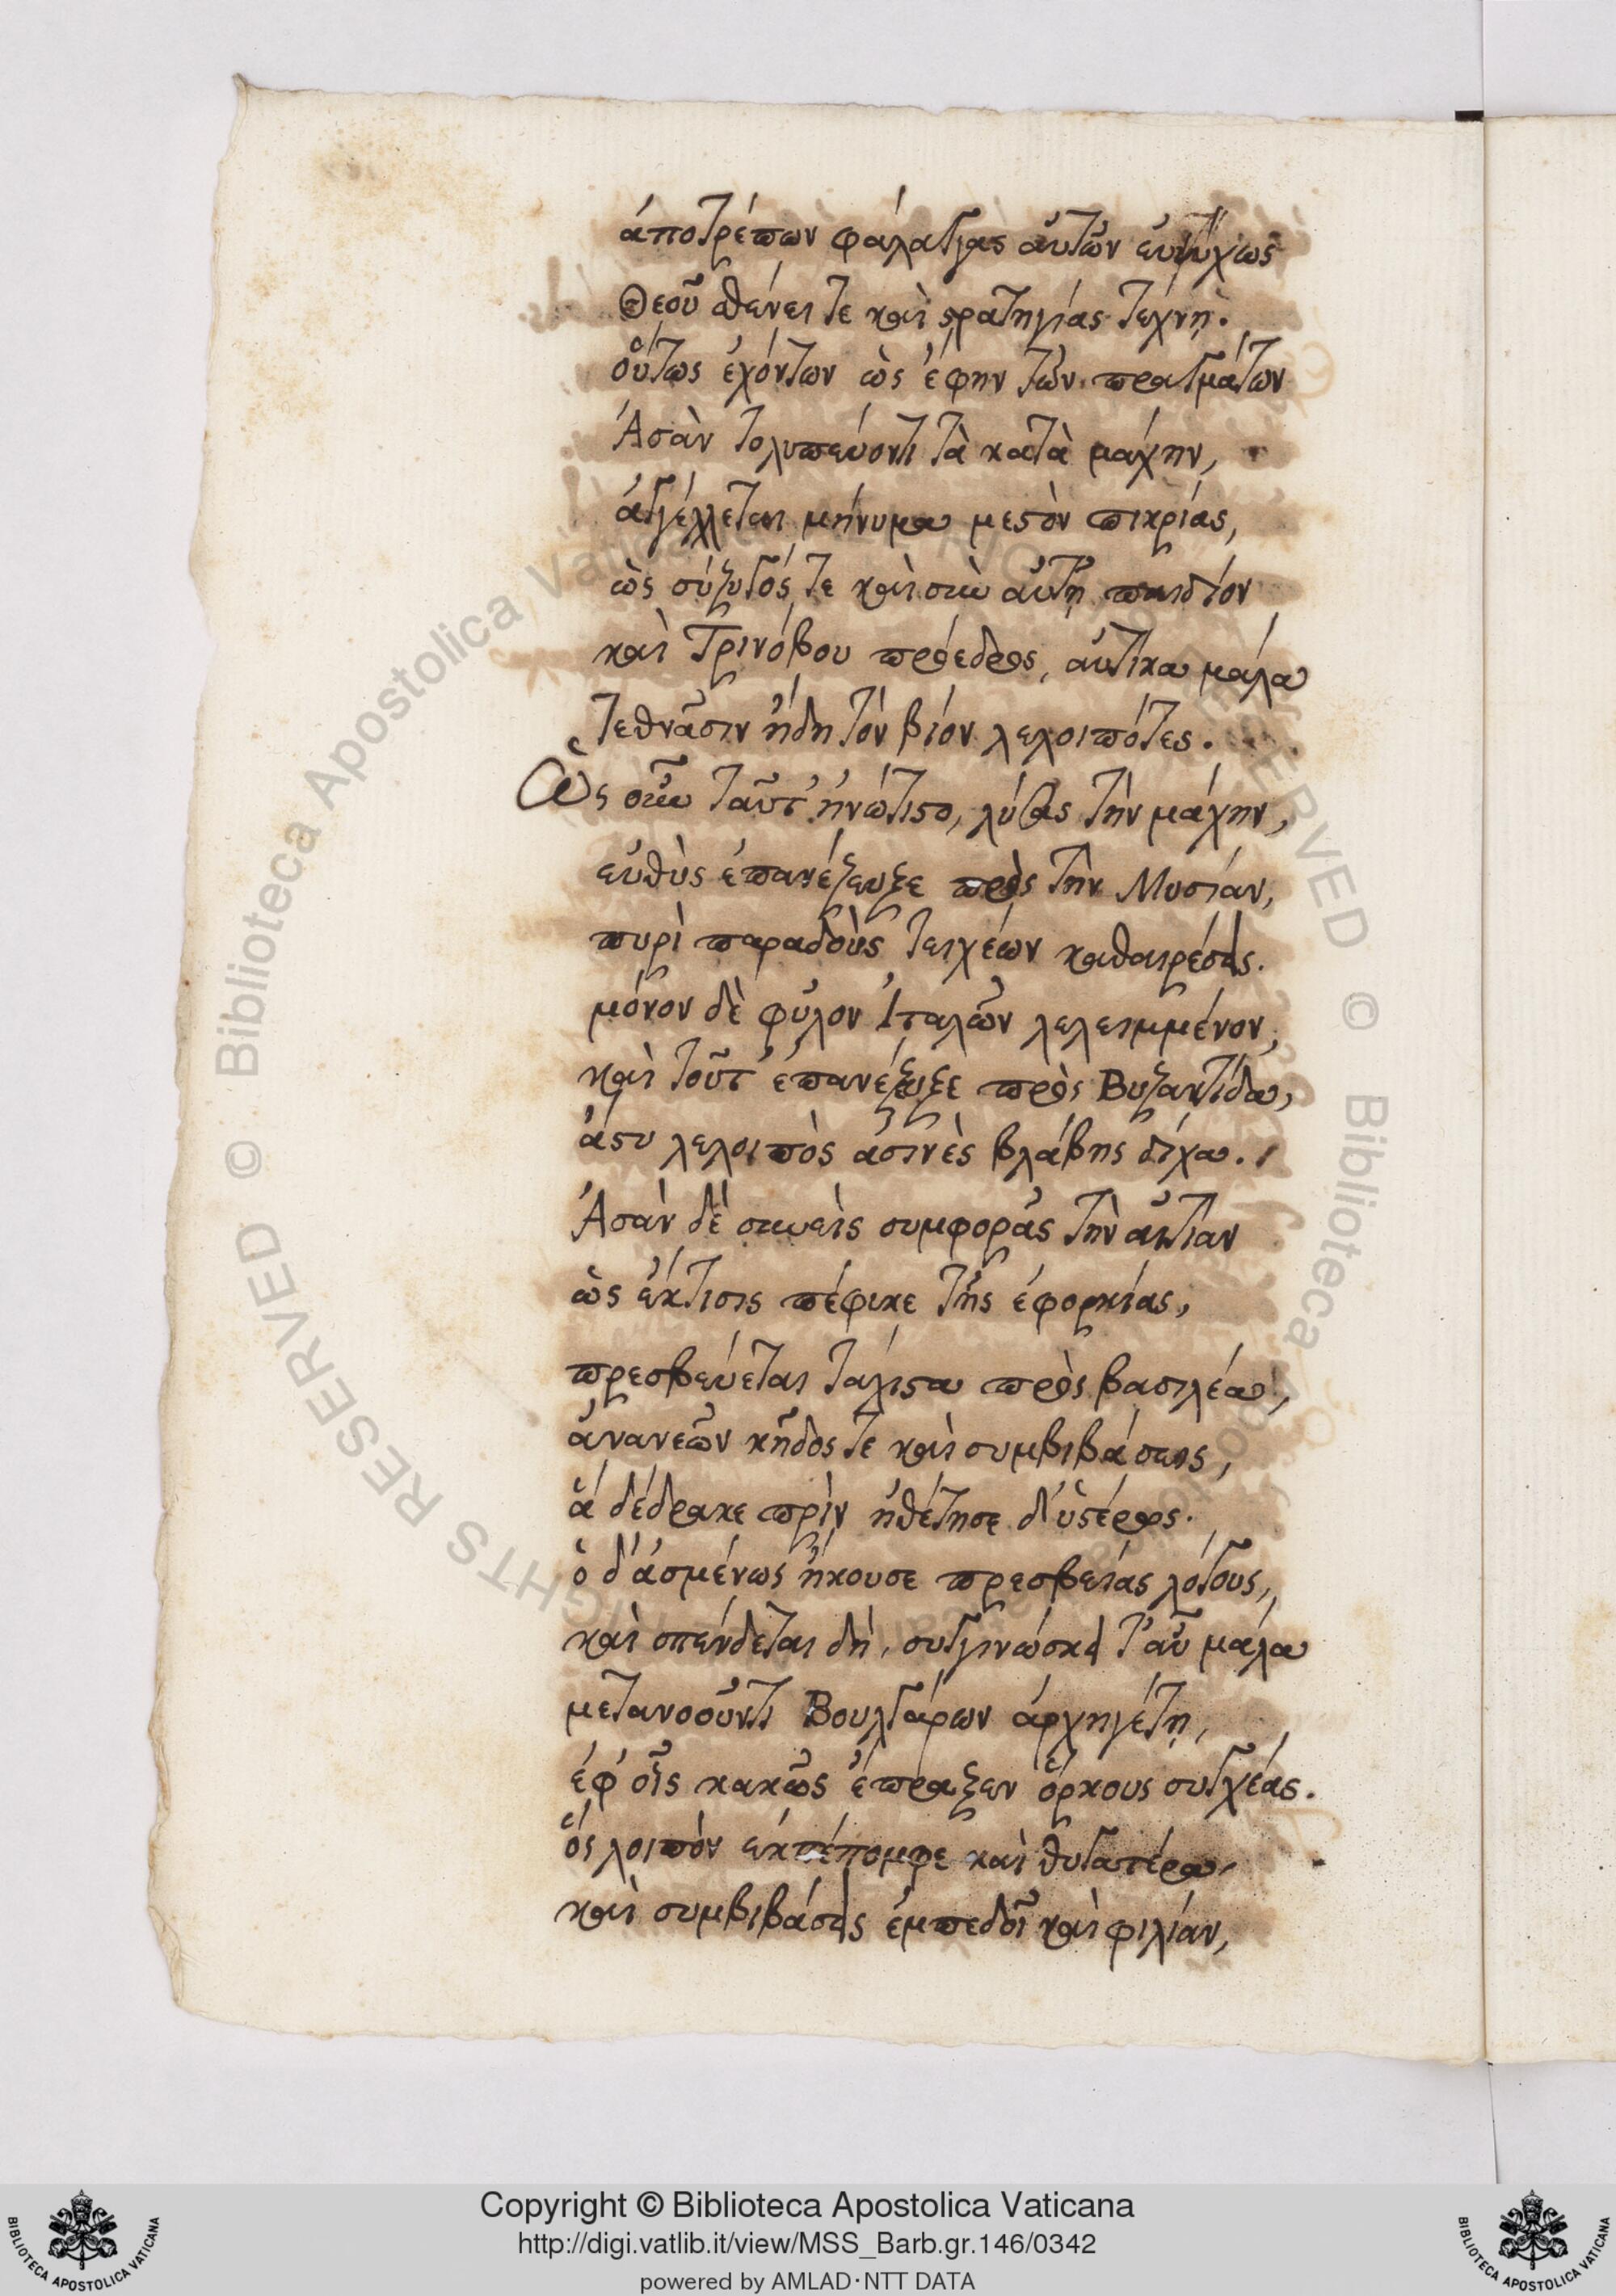 ἀποτρέπων φάλαγγας αὐτῶν εὐψύχως
Θεοῦ σθένει τε καὶ στρατηγίας τέχνῃ.
οὕτως ἐχόντων ὡς ἔφην τῶν πραγμάτων
Ἀσὰν τολυπεύοντι τὰ κατὰ μάχην,
ἀγγέλλεται μήνυμα μεστὸν πικρίας,
ὡς σύζυγός τε καὶ σὺν αὐτῇ παιδίον
καὶ Τρινόβου πρόεδρος, αὐτίκα μάλα
τεθνᾶσιν ἤδη τὸν βίον λελοιπότες.
Ὡς οὖν ταῦτ' ἠνώτιστο, λύσας τὴν μάχην,
εὐθὺς ἐπανέζευξε πρὸς τὴν Μυσίαν,
πυρὶ παραδοὺς τειχέων καθαιρέσεις.
μόνον δὲ φῦλον Ἰταλῶν λελειμμένον,
καὶ τοῦτ' ἐπανέζευξε πρὸς Βυζαντίδα,
ἄστυ λελοιπὸς ἀσινὲς βλάβης δίχα.
Ἀσὰν δὲ συνεὶς συμφορᾶς τὴν αἰτίαν
ὡς ἔκτισις πέφυκε τῆς ἐφορκίας,
πρεσβεύεται τάχιστα πρὸς βασιλέα,
ἀνανεῶν κῆδος τε καὶ συμβιβάσεις,
ἃ δέδρακε πρὶν ἠθέτησε δ' ὑστέρως.
ὁ δ' ἀσμένως ἤκουσε πρεσβείας λόγους,
καὶ σπένδεται δὴ, συγγινώσκει τ' αὖ μάλα
μετανοοῦντι Βουλγάρων ἀρχηγέτῃ,
ἐφ' οἷς κακῶς ἔπραξεν ὅρκους συγχέας.
ὃς λοιπὸν ἐκπέπομφε καὶ θυγατέρα,
καὶ συμβιβάσεις ἐμπεδοῖ καὶ φιλίαν,
Copyright © Biblioteca Apostolica Vaticana
http://digi.vatlib.it/view/MSS_Barb.gr.146/0342
powered by AMLAD·NTT DATA